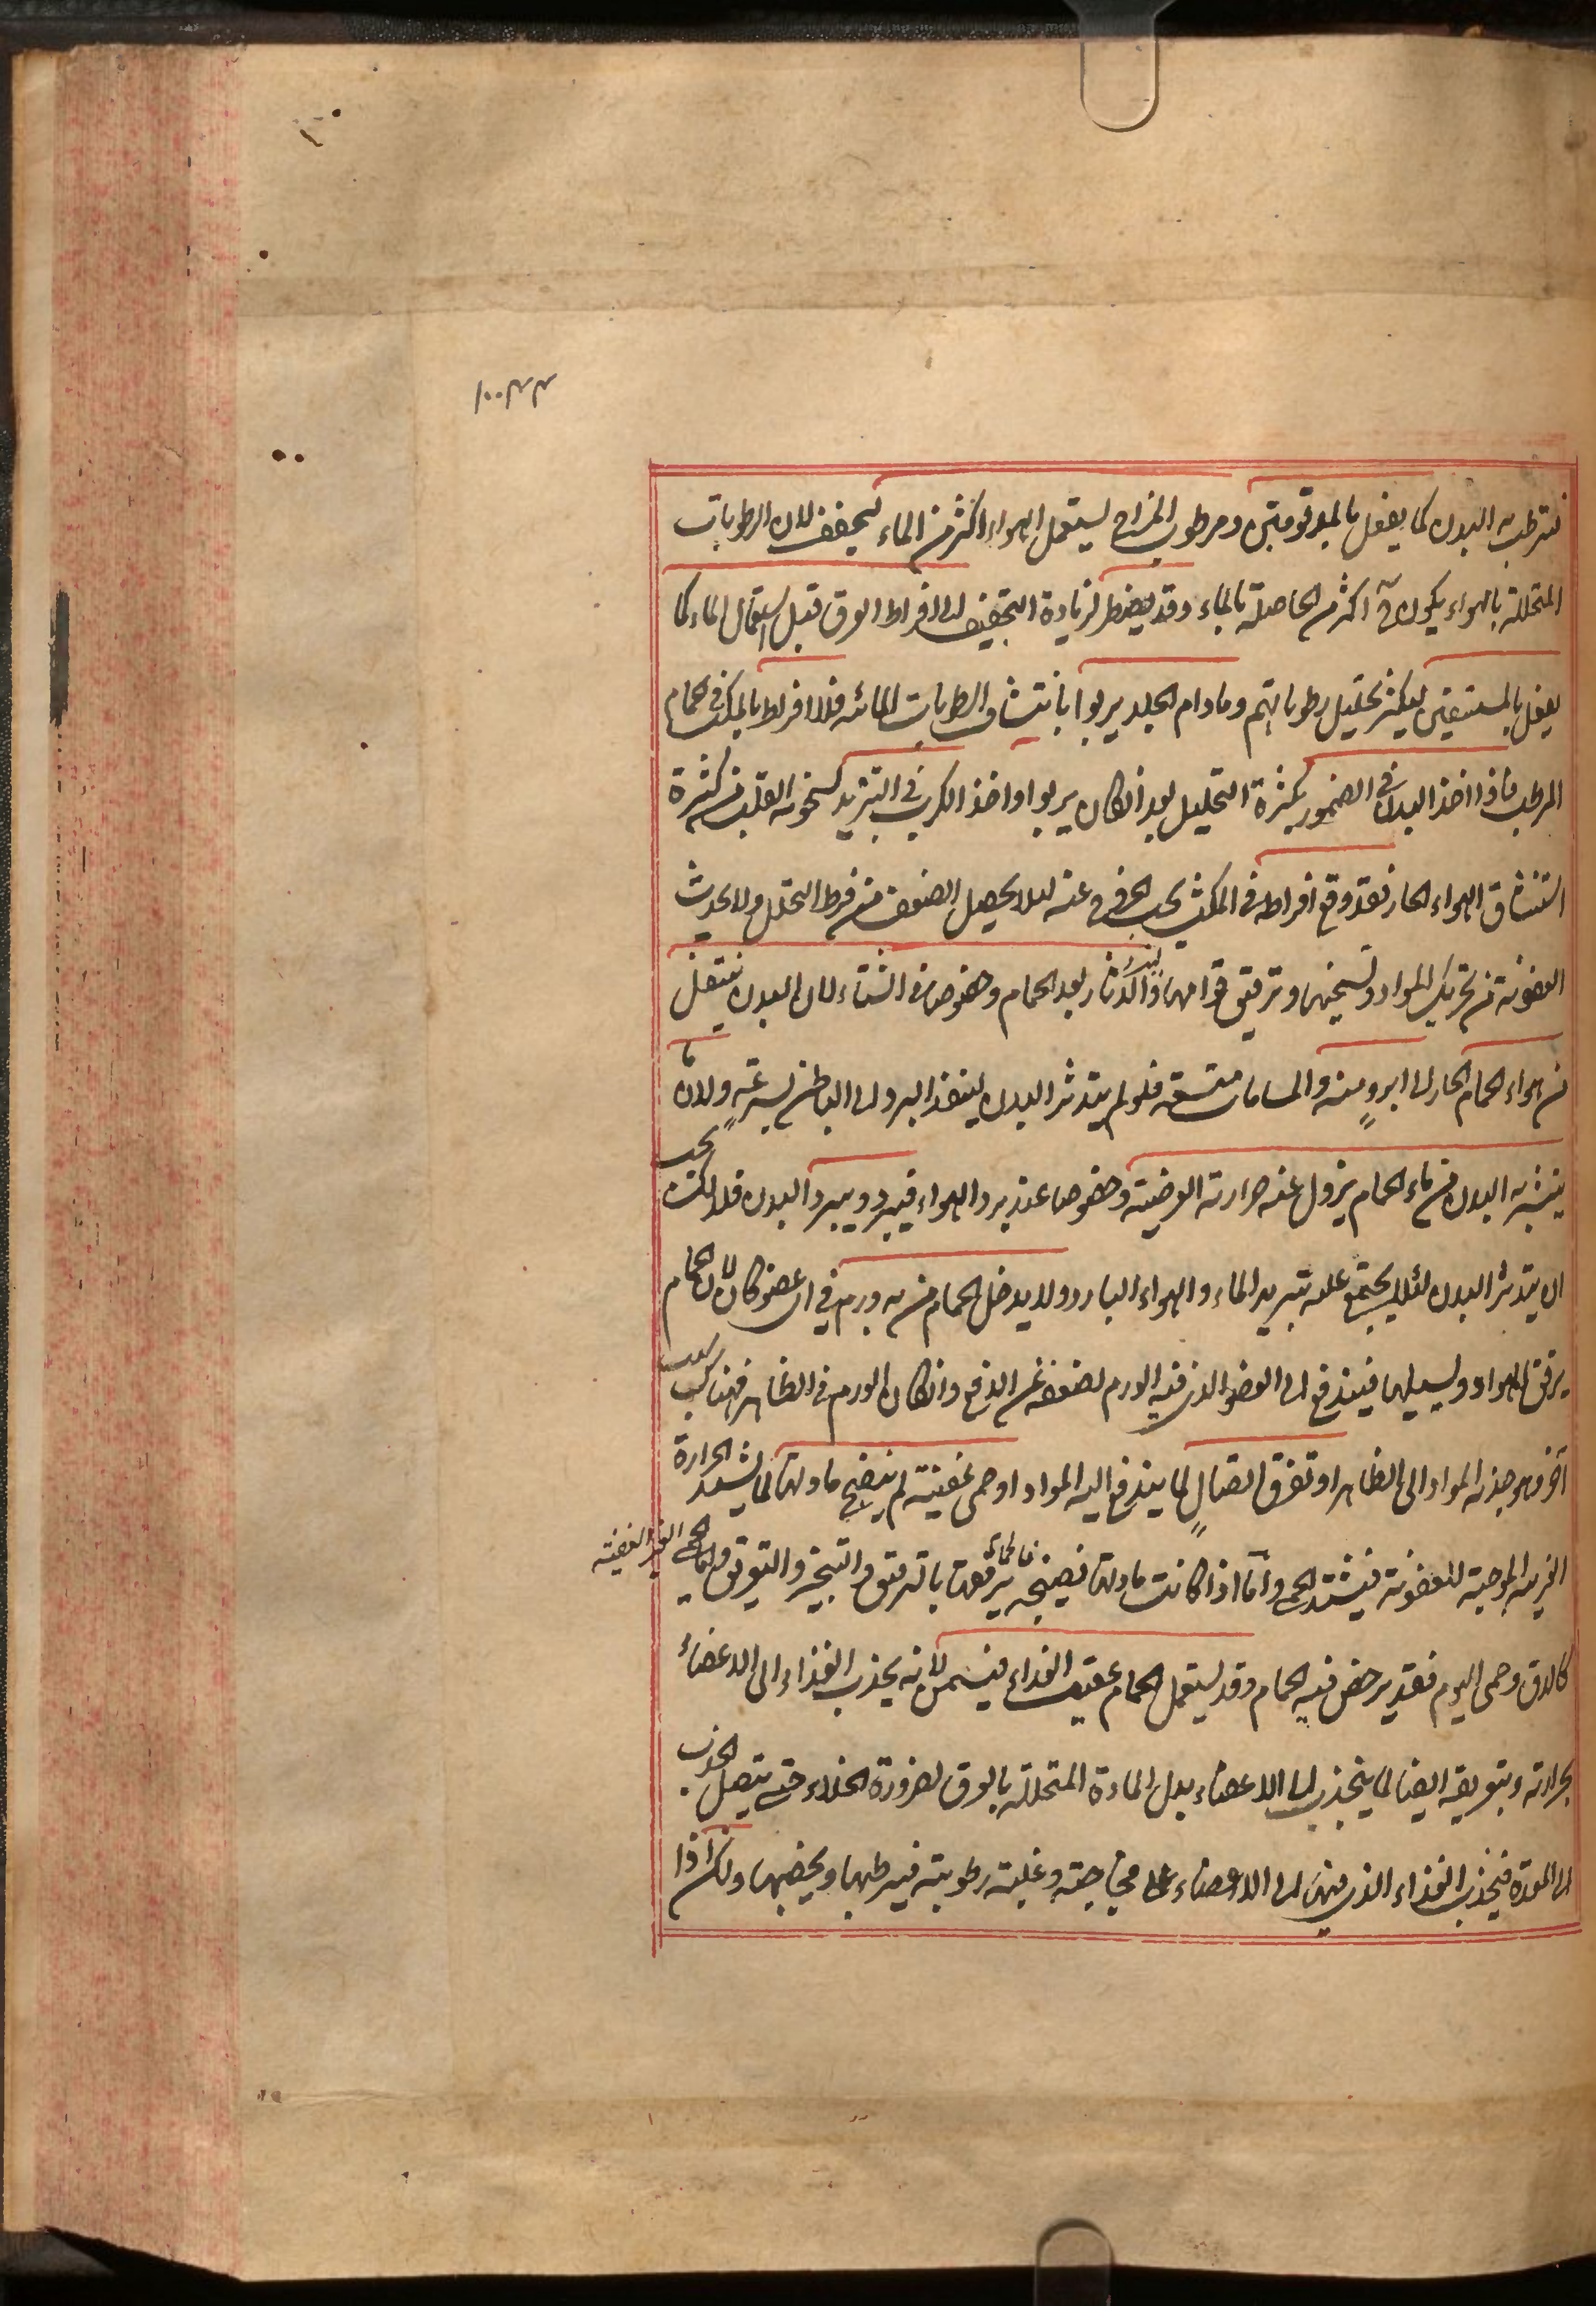 فيترطب به البدن كما يفعل بالمدقوقين ومرطوب المزاج يستعمل الهواء اكثر من الماء ليجفف لان الرطوبات
المتحللة بالهواء يكون ح اكثر من الحاصلة بالماء وقد يضطر لزيادة التجفيف الى افراط العرق قبل استعمال الماء كما
يفعل بالمستسقين ليكثر تحليل رطوباتهم ومادام الجلد يربوا بانتشاف الرطوبات المائية فلا افراط بالمكث فى الحمام
المرطب فاذا اخذ البدن فى الضمور بكثرة التحليل بعد انكان يربوا واخذ الكرب فى التزيد لسخونة القلب من كثرة
استنشاق الهواء الحار فقد وقع افراط فى المكث يجب الخروج عنه لئلا يحصل الضعف من فرط التحلل ولا يحدث
العفونة من تحريك المواد وتسخينها وترقيق قوامها والدثار بعد الحمام وخصوصا فى الشتاء لان البدن ينتقل
من هواء الحمام الحار الى ابرد منه والمسامات متسعة فلو لم يتدثر البدن لينفذ البرد الى الباطن بسرعة ولان ما
يتشربه البدن من ماء الحمام يزول عنه حرارته العرضية وخصوصا عند برد الهواء فيبرد ويبرد البدن فلذلك يجب
ان يتدثر البدن لئلا يجتمع عليه تبريد الماء والهواء البارد ولا يدخل الحمام من به ورم فى اى عضو كان لان الحمام
يرقق المواد ويسيلها فيندفع الى العضو الذى فيه الورم لضعفه عن الدفع وانكان الورم فى الظاهر فهناك سبب
آخر وهو جذبه المواد الى الظاهر او تفرق اتصال لما يندفع اليه المواد او حمى عفنية لم ينضج مادتها لما يشتد الحرارة
الغريبة الموجبة للعفونة فيشتد الحمى واما اذا كانت مادتها نضيجة فالحمام يرفعها بالترقيق والتبخير والتعريق واما الحمى الغير العفنية
كالدق وحمى اليوم فقد يرخص فيه الحمام وقد يستعمل الحمام عقيب الغذاء فيسمن لانه يجذب الغذاء الى الاعضاء
بحرارته وبتعريقه ايضا لما ينجذب الى الاعضاء بدل المادة المتحللة بالعرق لضرورة الخلاء حتى يتصل الجذب
الى المعدة فينجذب الغذاء الذى فيها الى الاعضاء على فجاجته وغلبة رطوبته فيرطبها ويخصبها ولكن اذا